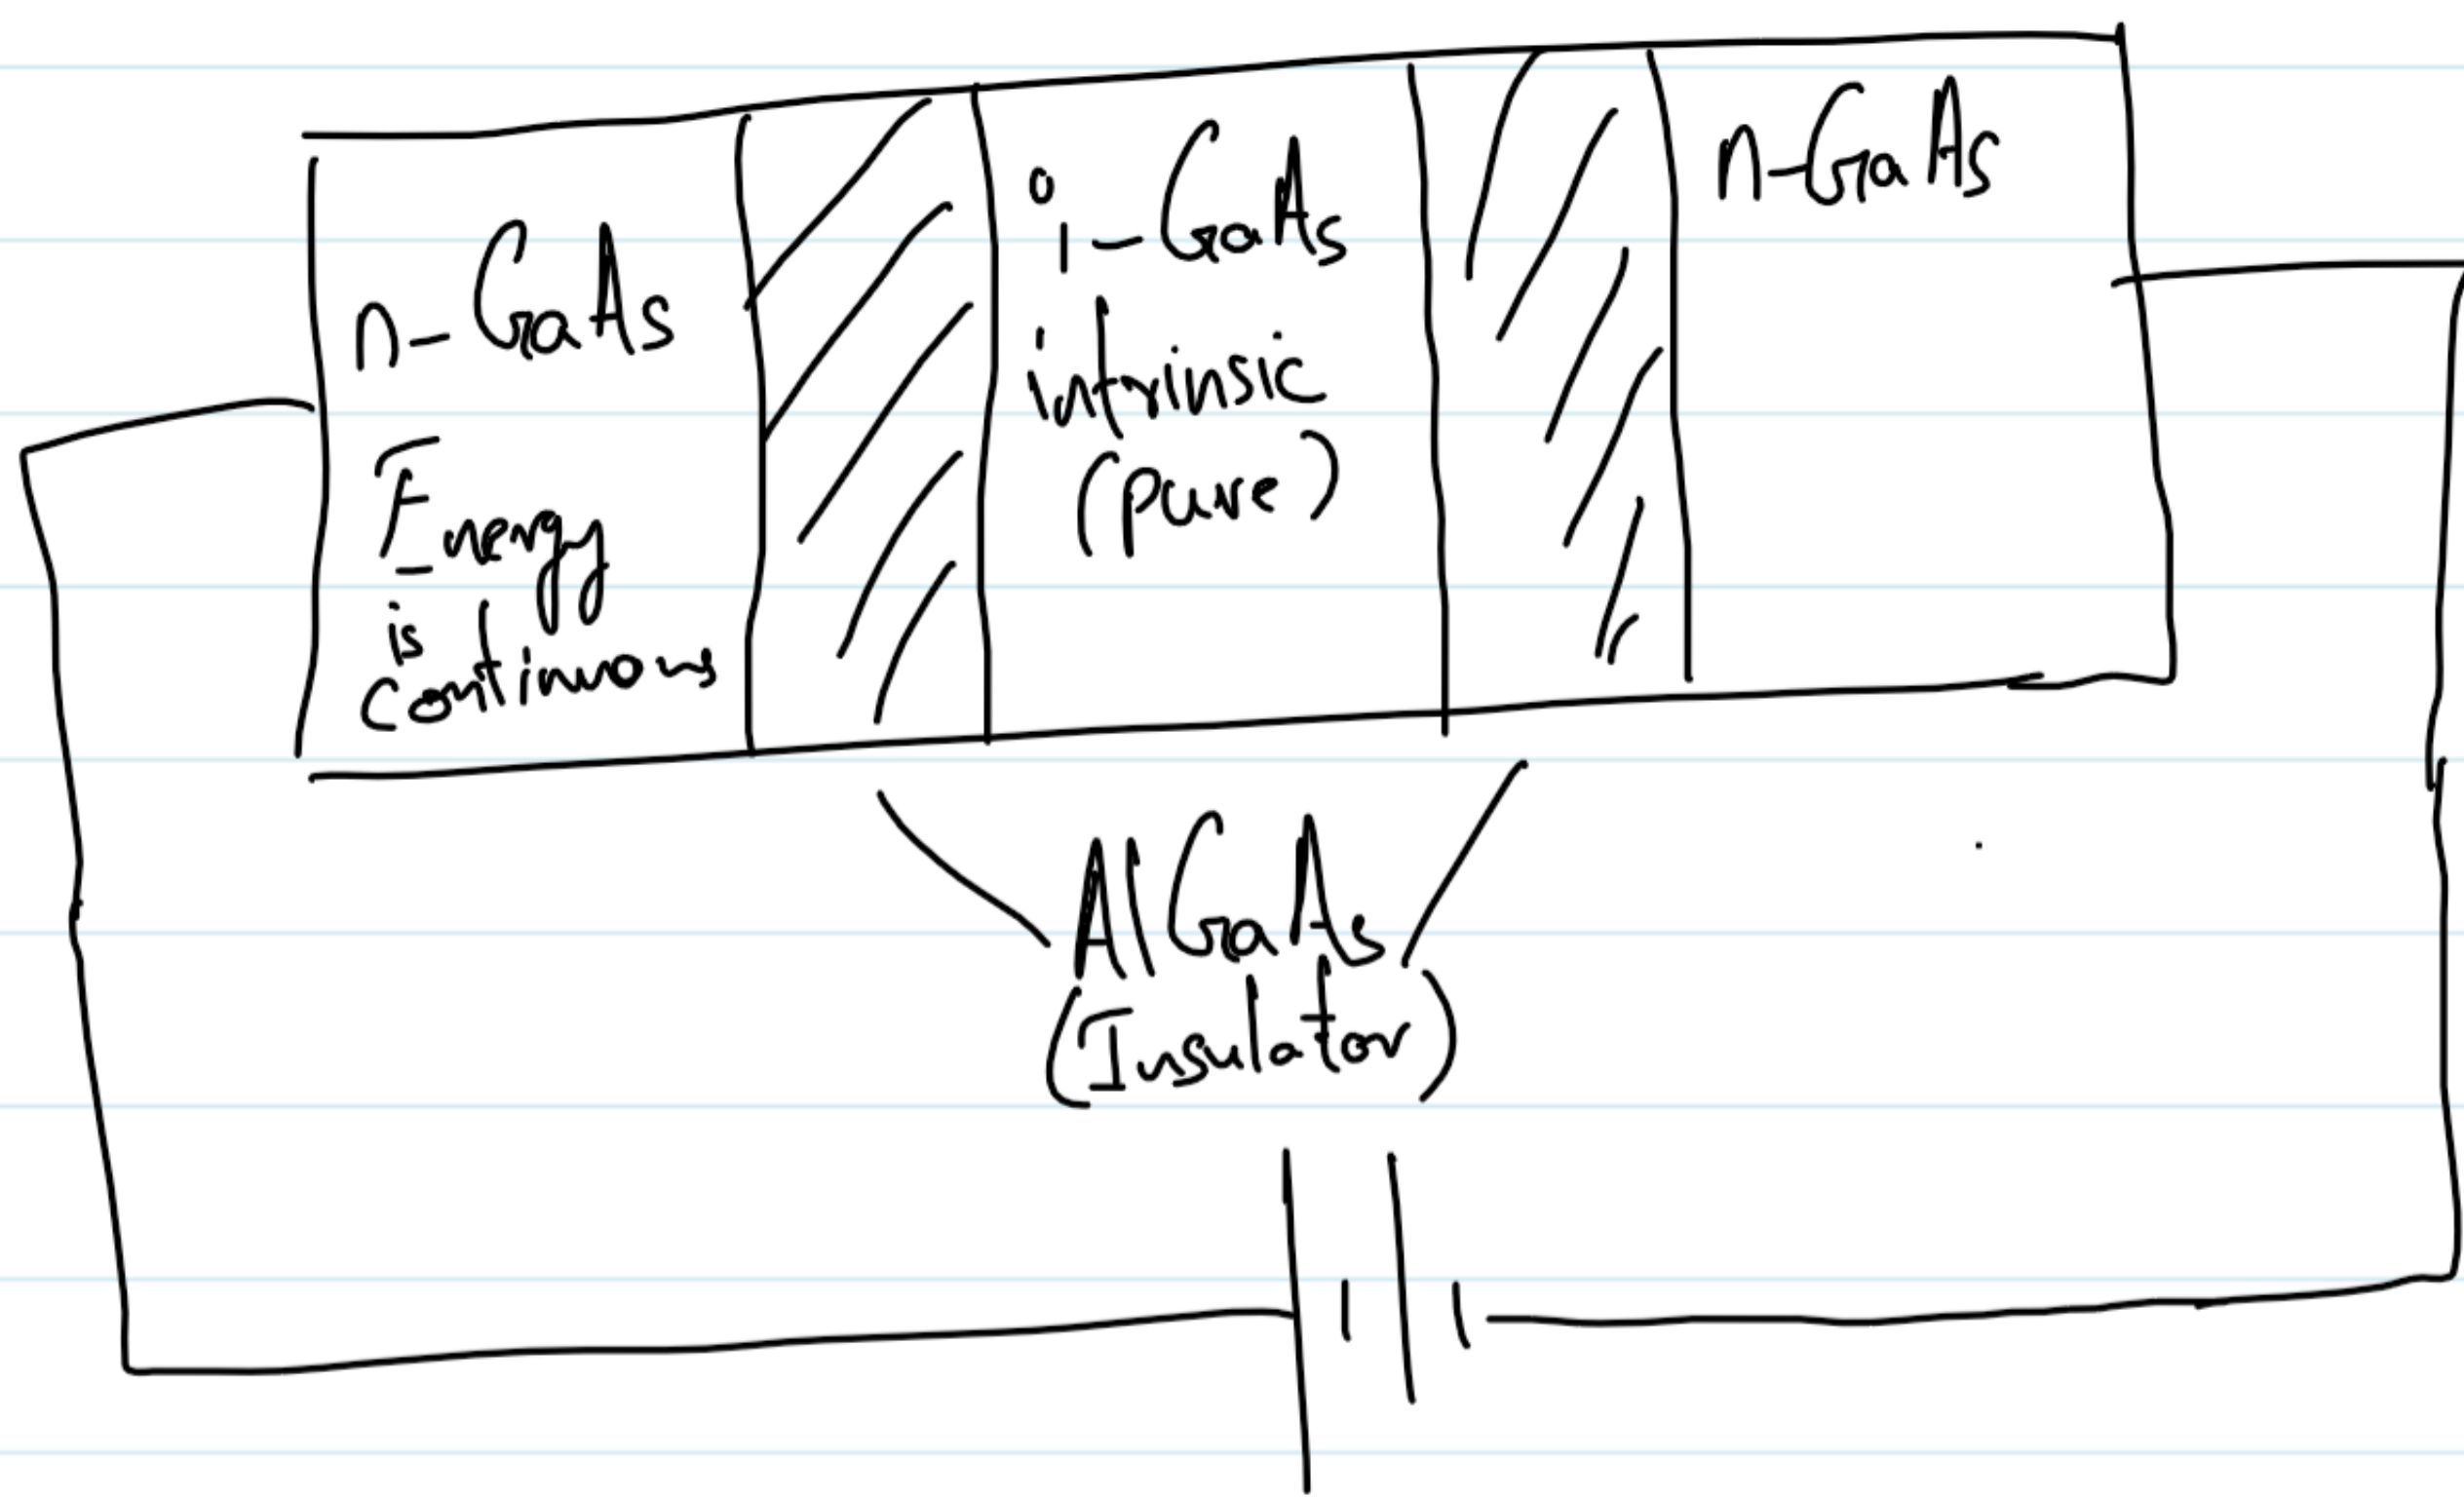 n-GaAs
Energy
is
continuous
i-GaAs
intrinsic
(pure)
n-GaAs
AlGaAs
(Insulator)